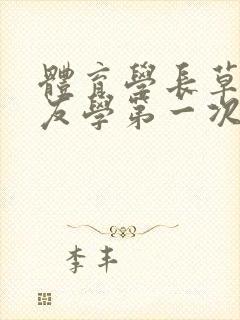 體育學長草
友學第一次
李丰